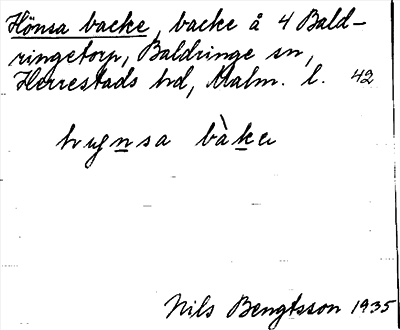 Hönsa backe, backe å 4 Bald-
ringetorp, Baldringe sn,
Herrestads hd, Malm. l. 42
bàka
Nils Bengtsson 1935